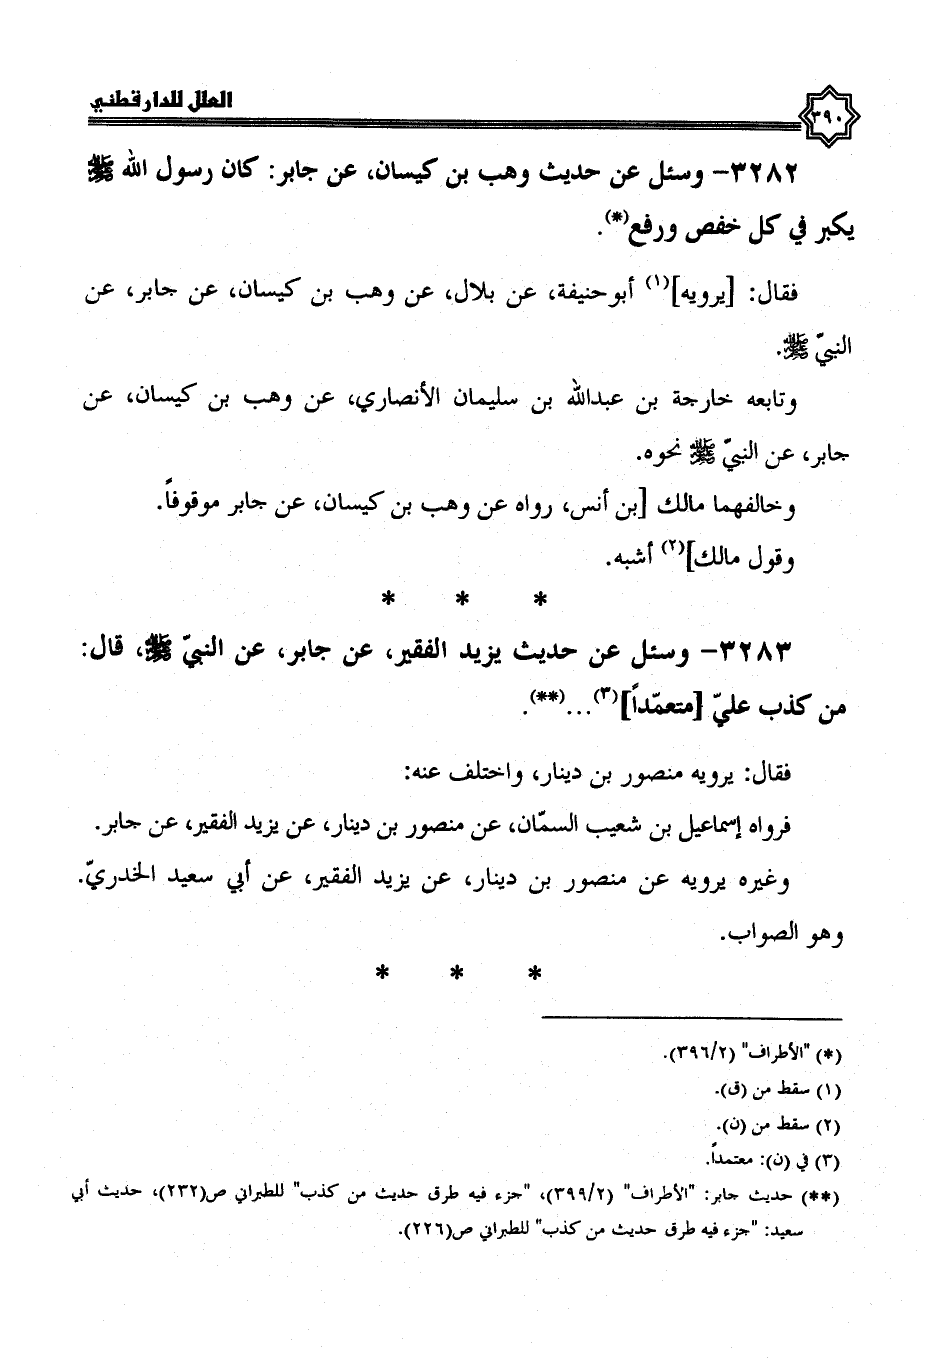 العلل للدارقطني
٣٩٠
٣٢٨٢- وسئل عن حديث وهب بن كيسان، عن جابر: كان رسول الله ﷺ
يكبر في كل خفص ورفع(*).
فقال: [يرويه](١) أبوحنيفة، عن بلال، عن وهب بن كيسان، عن جابر، عن
النبيّ ﷺ.
وتابعه خارجة بن عبدالله بن سليمان الأنصاري، عن وهب بن كيسان، عن
جابر، عن النبيّ ﷺ نحوه.
وخالفهما مالك [بن أنس، رواه عن وهب بن كيسان، عن جابر موقوفاً.
وقول مالك](٢) أشبه.
* * *
٣٢٨٣- وسئل عن حديث يزيد الفقير، عن جابر، عن النبيّ ﷺ، قال:
من كذب عليّ [متعمّداً](٣)...(**).
فقال: يرويه منصور بن دينار، واختلف عنه:
فرواه إسماعيل بن شعيب السمّان، عن منصور بن دينار، عن يزيد الفقير، عن جابر.
وغيره يرويه عن منصور بن دينار، عن يزيد الفقير، عن أبي سعيد الخدريّ.
وهو الصواب.
* * *
(*) "الأطراف" (٣٩٦/٢).
(١) سقط من (ق).
(٢) سقط من (ن).
(٣) في (ن): معتمداً.
(**) حديث جابر: "الأطراف" (٣٩٩/٢)، "جزء فيه طرق حديث من كذب" للطبراني ص(٢٣٢)، حديث أبي
سعيد: "جزء فيه طرق حديث من كذب" للطبراني ص(٢٢٦).